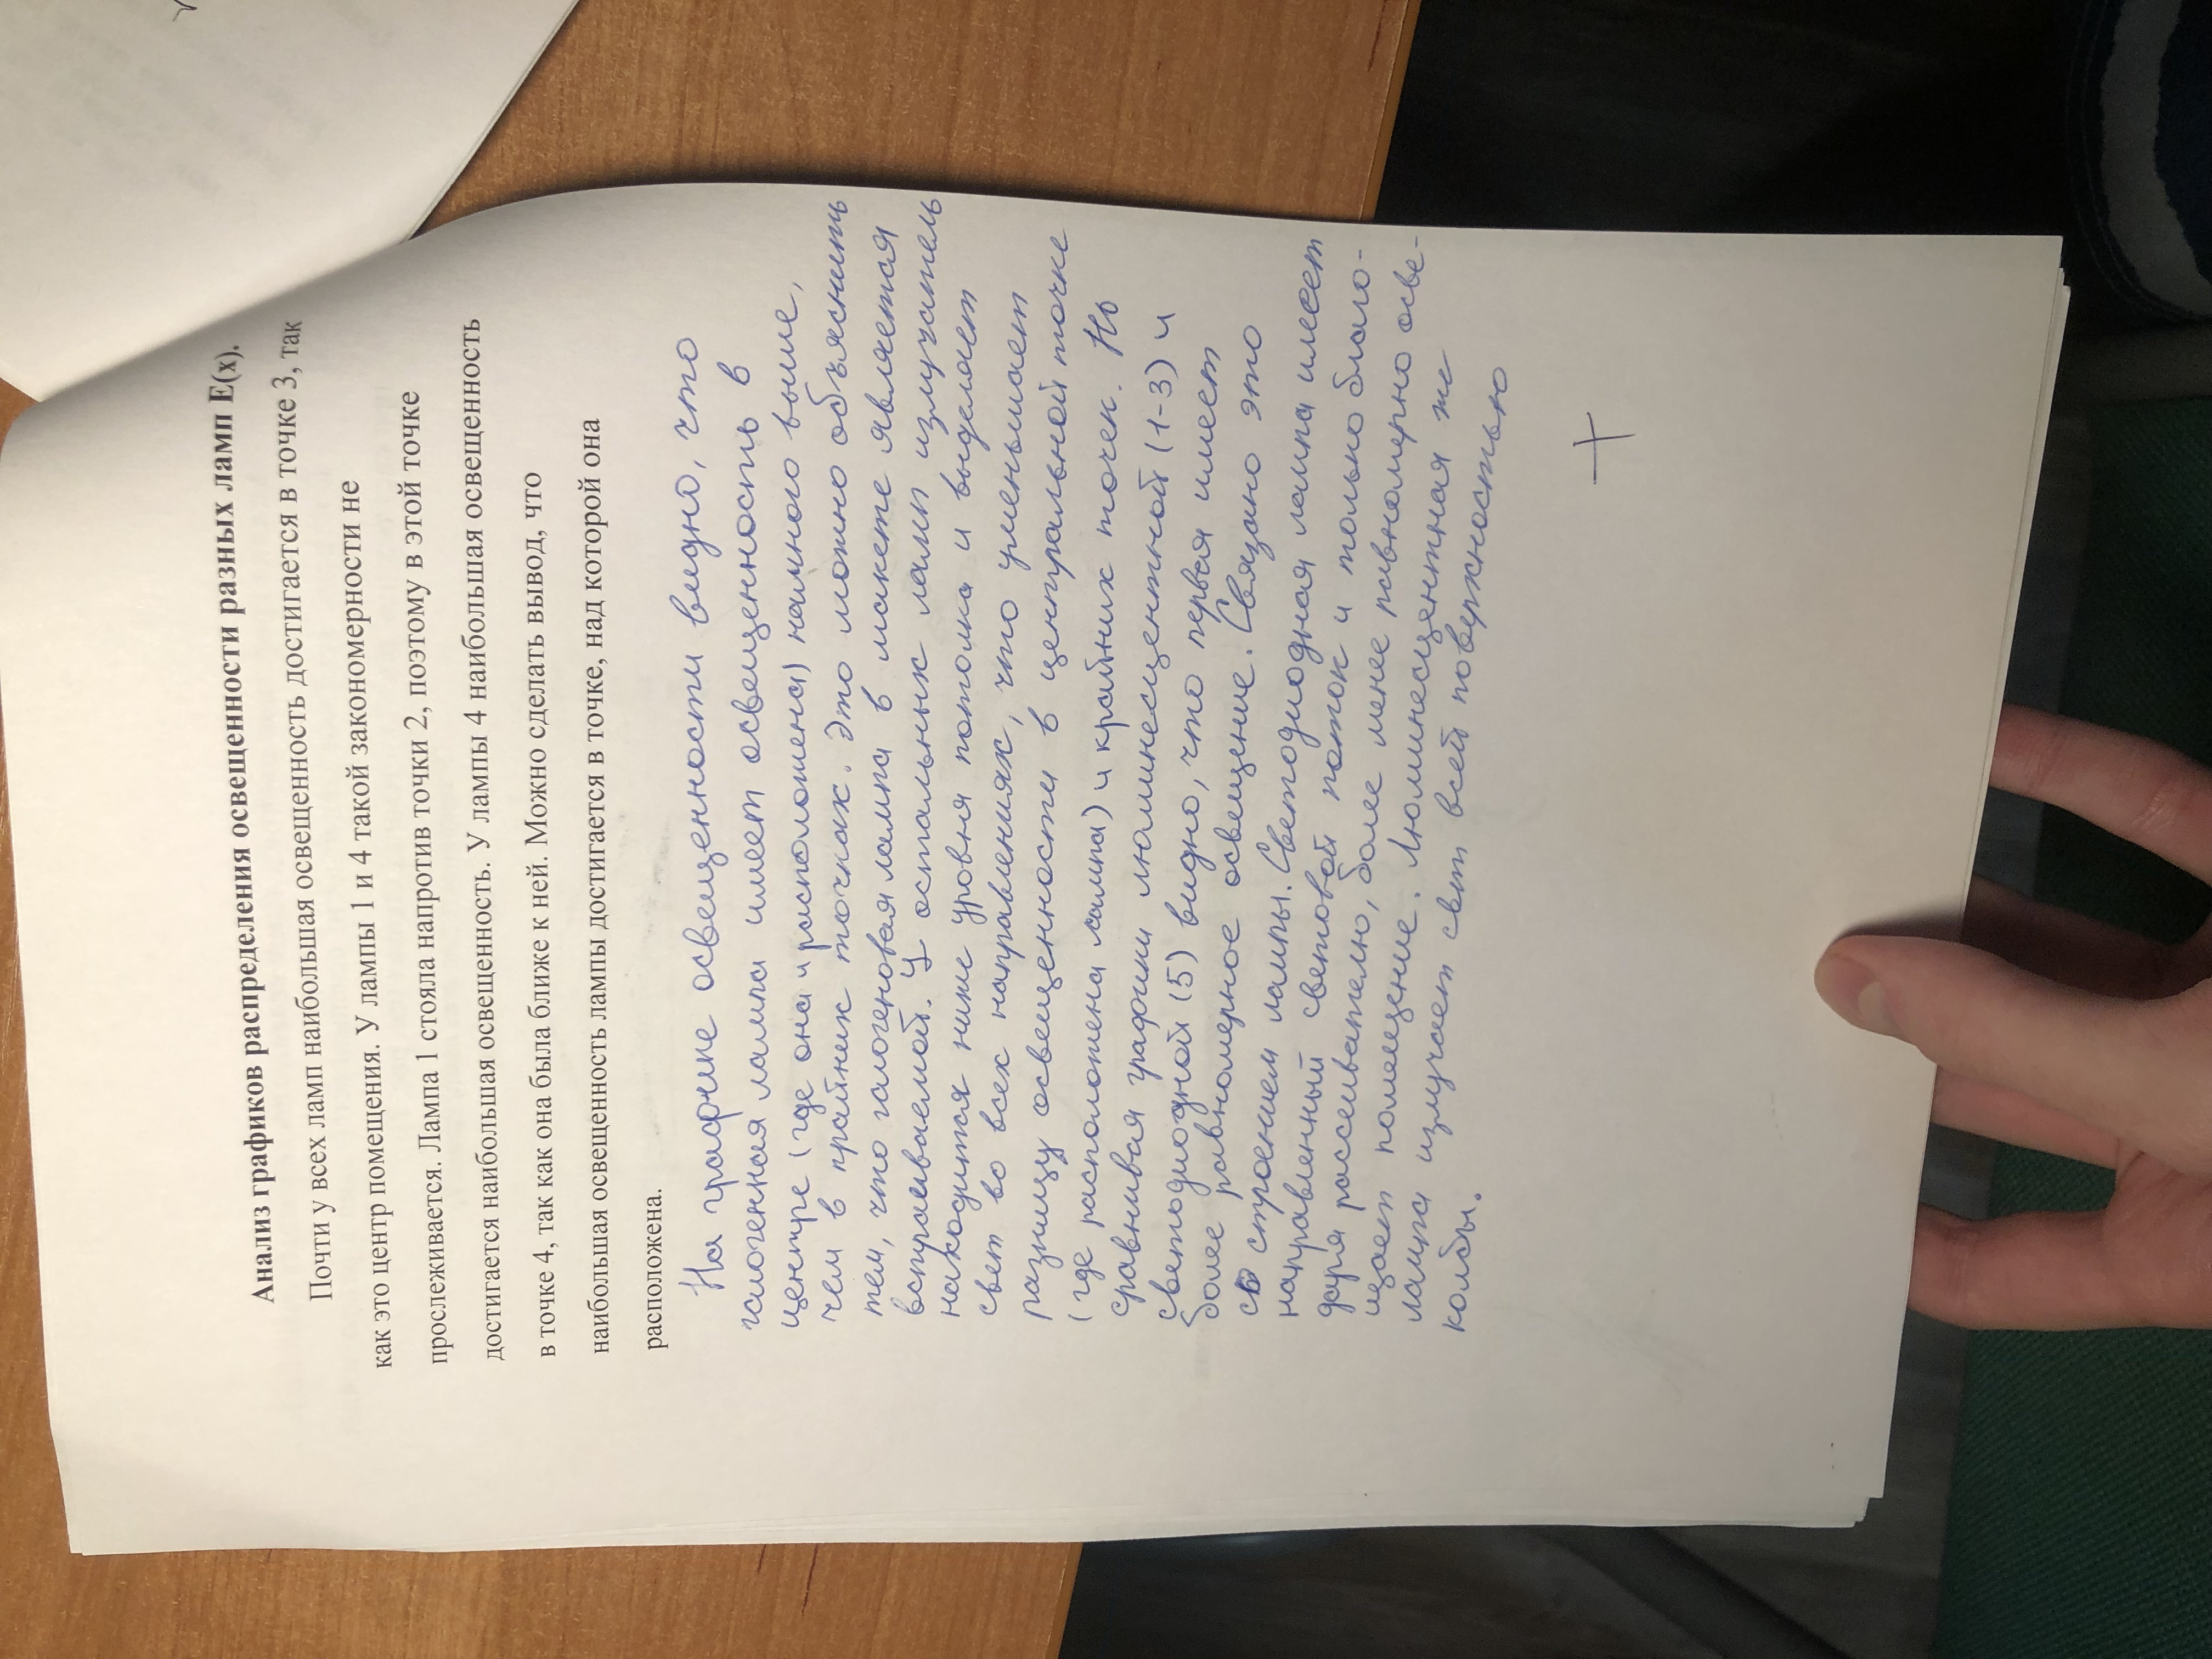 Анализ графиков распределения освещенности разных ламп E(x).
Почти у всех ламп наибольшая освещенность достигается в точке 3, так
как это центр помещения. У лампы 1 и 4 такой закономерности не
прослеживается. Лампа 1 стояла напротив точки 2, поэтому в этой точке
достигается наибольшая освещенность. У лампы 4 наибольшая освещенность
в точке 4, так как она была ближе к ней. Можно сделать вывод, что
наибольшая освещенность лампы достигается в точке, над которой она
расположена.
На графике освещенности видно, что
галогенная лампа имеет освещенность в
центре (где она и расположена) намного выше,
чем в крайних точках. Это можно объяснить
тем, что галогеновая лампа в макете является
встраиваемой. У остальных ламп излучатель
находится ниже уровня потолка и выделяет
свет во всех направлениях, что уменьшает
разницу освещенности в центральной точке
(где расположена лампа) и крайних точек. Но
сравнивая графики люминесцентной (1-3) и
светодиодной (5) видно, что первая имеет
более равномерное освещение. Связано это
со строением лампы. Светодиодная лампа имеет
направленный световой поток и только благо-
даря рассеивателю, более менее равномерно осве-
щает помещение. Люминесцентная же
лампа излучает свет всей поверхностью
колбы.
+